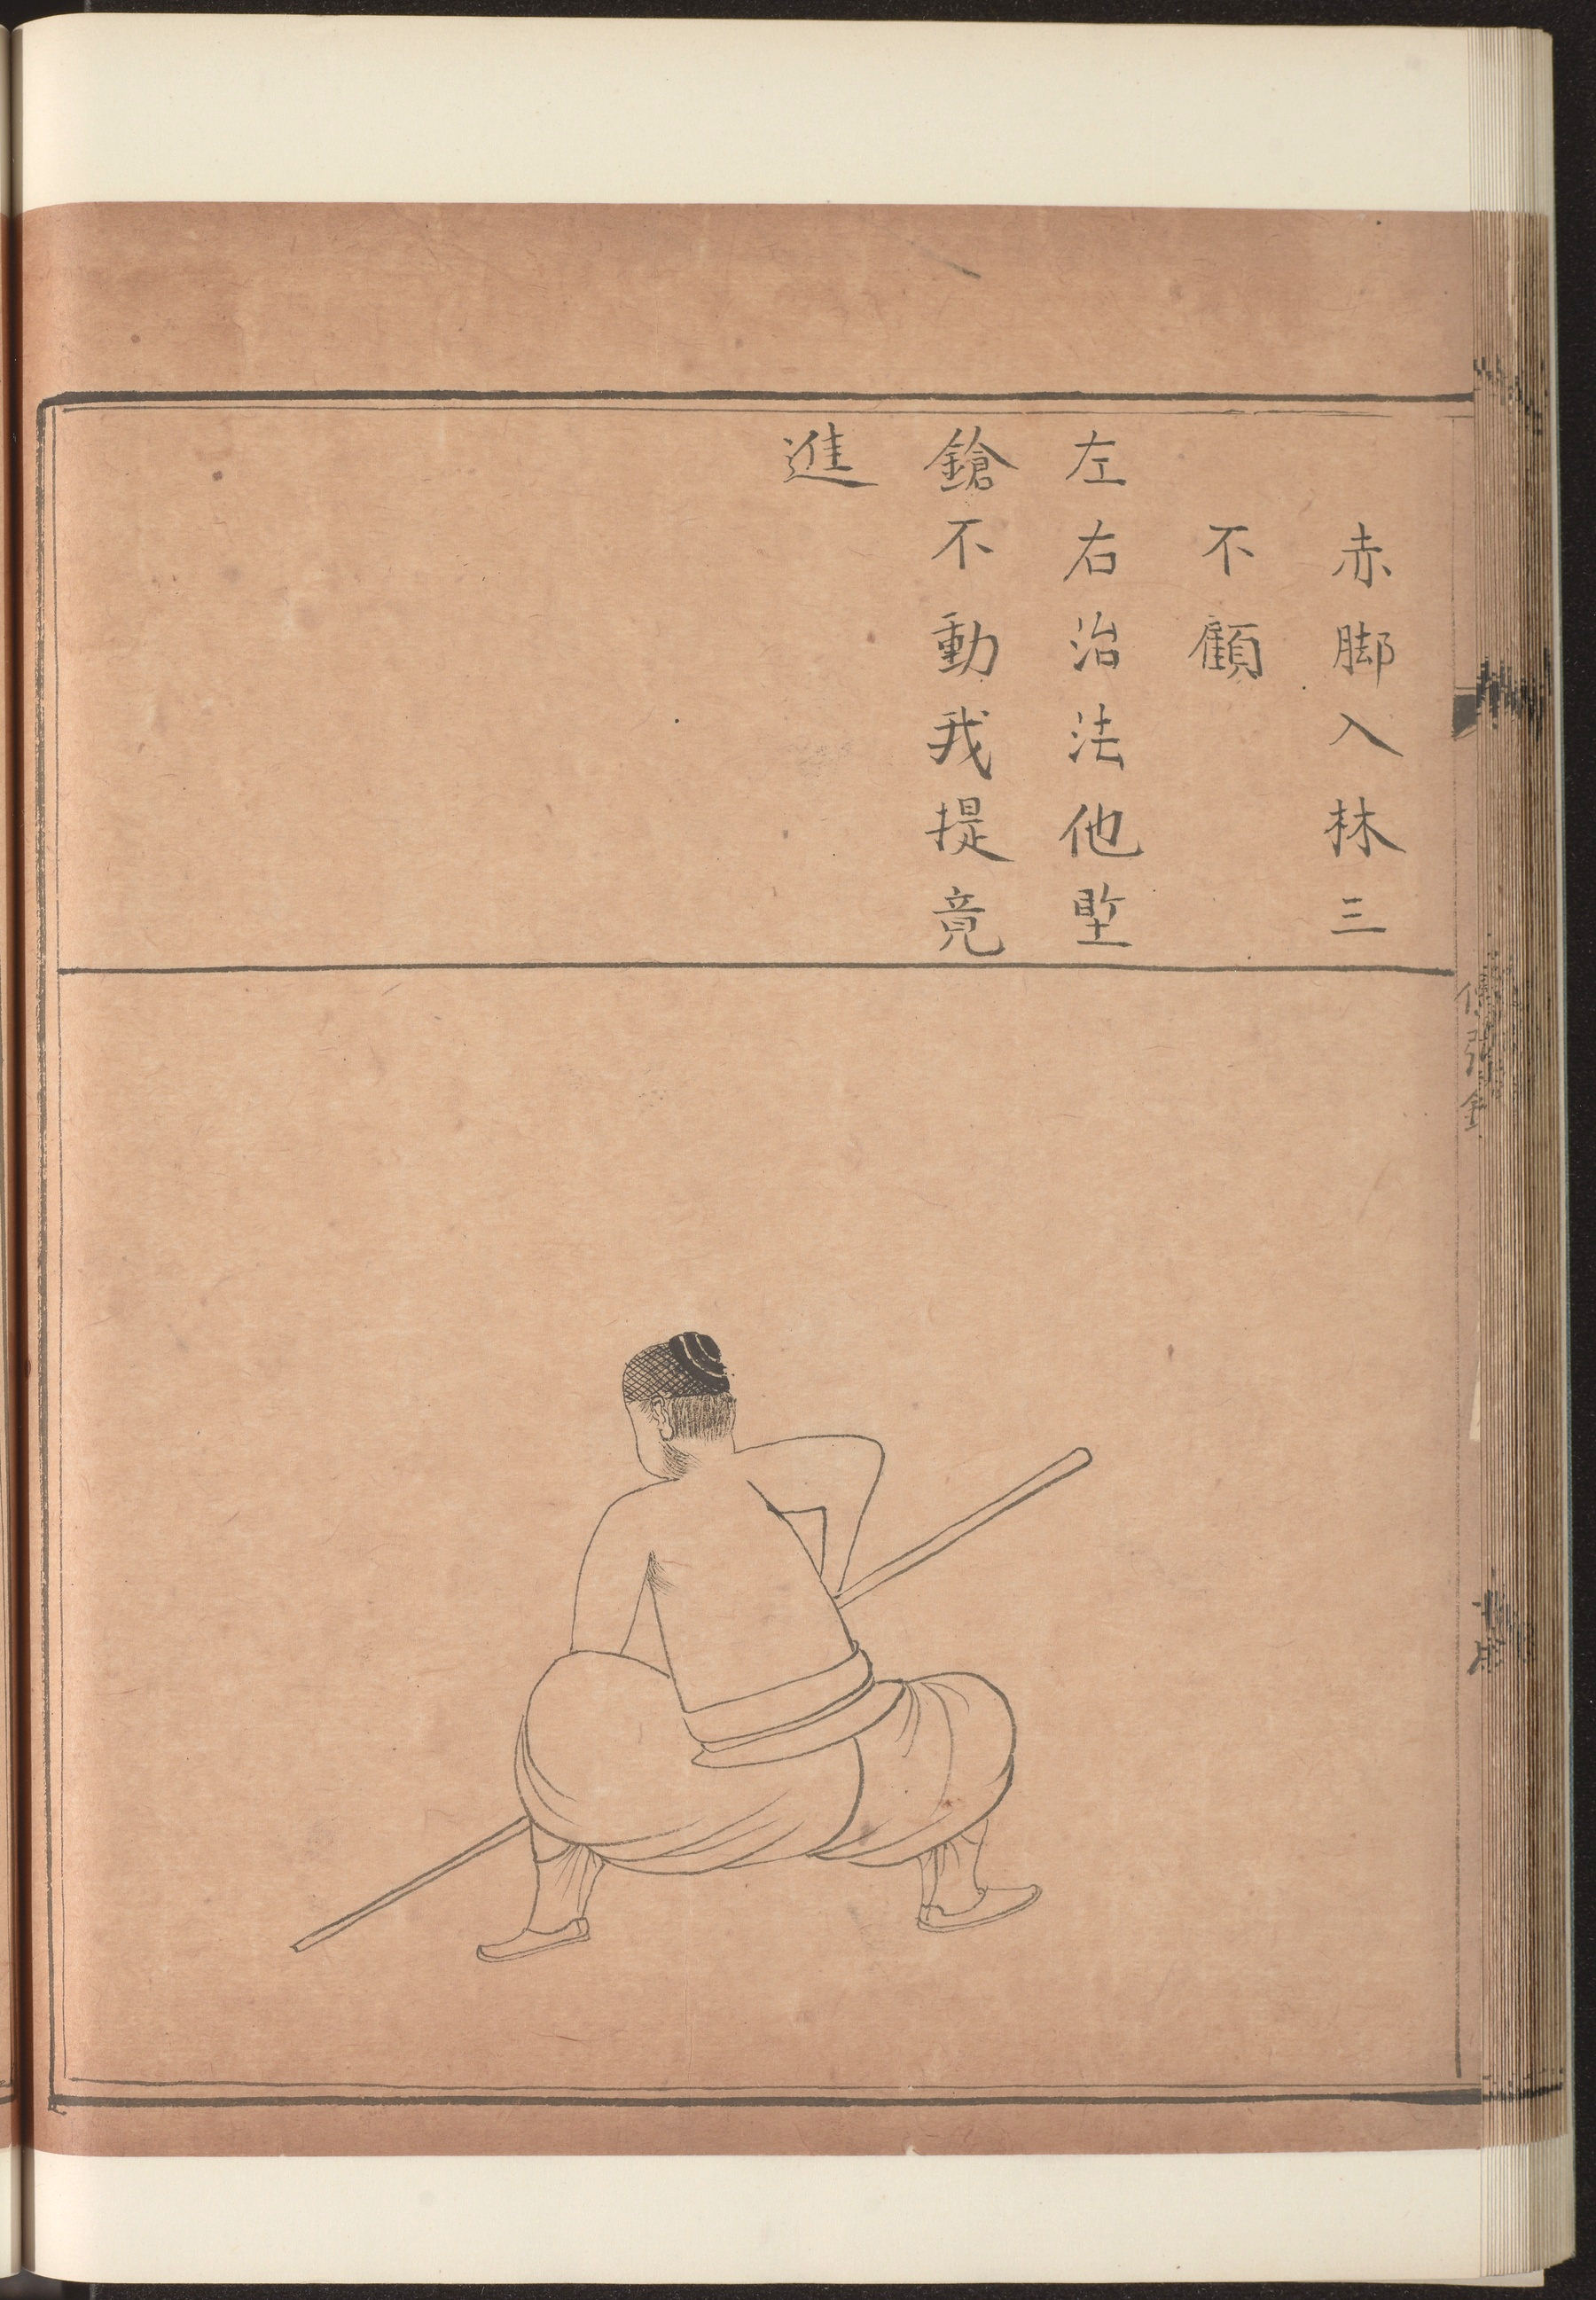 赤脚入林三
不顧
左右治法他
鎗不動我提竟
進